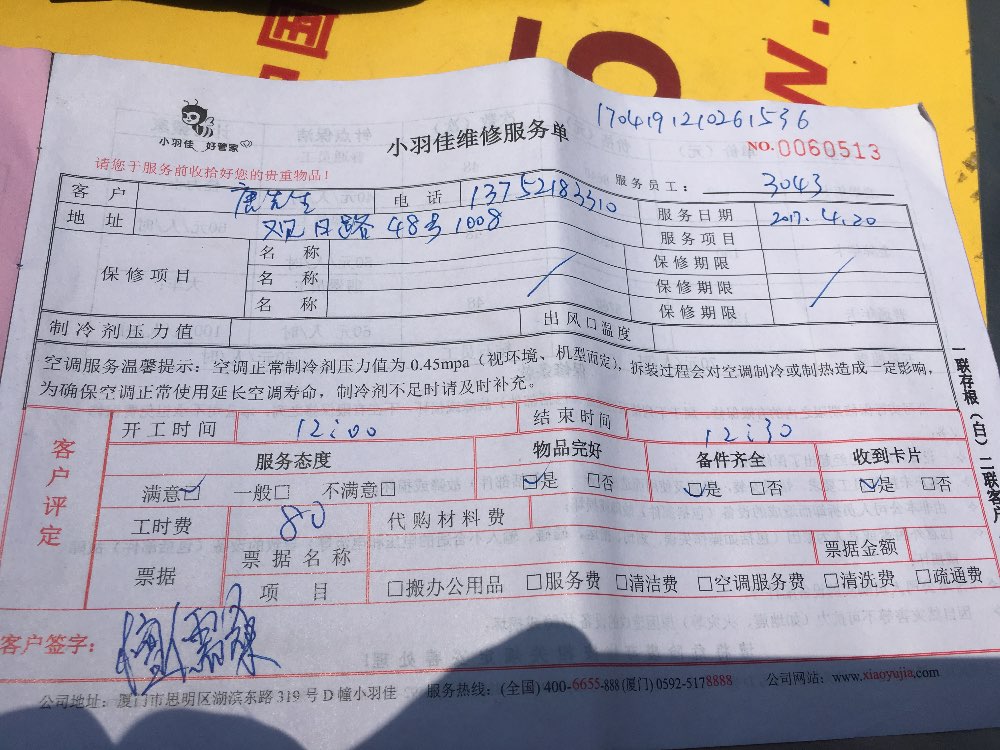 中国
W.
1704191210261536
小羽佳 好管家
小羽佳维修服务单
NO.0060513
请您于服务前收拾好您的贵重物品！
服务员工： 3043
客户 唐先生 电话 13752183310 服务日期 2017.4.20
地址 观日路48号1008 服务项目
保修项目 名称 保修期限
名称 保修期限
名称 保修期限
制冷剂压力值 出风口温度
空调服务温馨提示：空调正常制冷剂压力值为 0.45mpa（视环境、机型而定），拆装过程会对空调制冷或制热造成一定影响，
为确保空调正常使用延长空调寿命，制冷剂不足时请及时补充。
客户评定
开工时间 12:00 结束时间 12:30
服务态度 物品完好 备件齐全 收到卡片
满意☑ 一般□ 不满意□ ☑是 □否 ☑是 □否 ☑是 □否
工时费 80 代购材料费
票据 票据名称 票据金额
项目 □搬办公用品 □服务费 □清洁费 □空调服务费 □清洗费 □疏通费
客户签字：
公司地址：厦门市思明区湖滨东路 319 号 D 幢小羽佳 服务热线：(全国) 400-6655-888 (厦门) 0592-5178888 公司网站：www.xiaoyujia.com
一联存根（白）二联客户